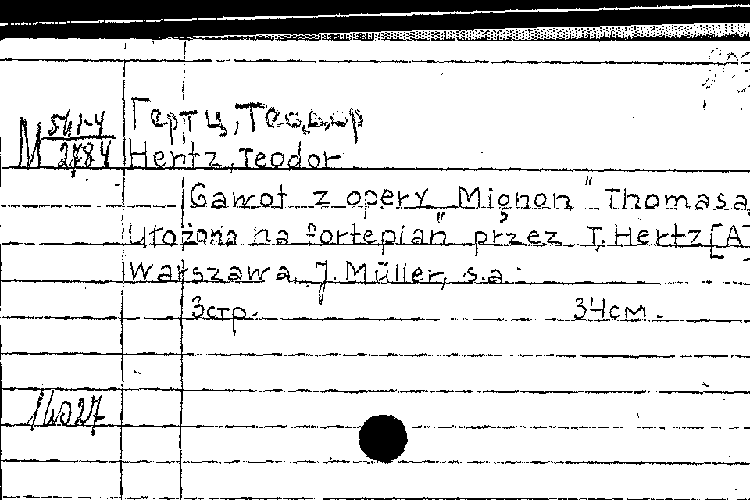 Гертц, Теодор
М 561-4
2784
Hertz, Teodor
Gawot z opery Mignon" Thomasa
ułożona na fortepian" przez T. Hertz [A]
Warszawa, J. Müller, s.a.
3стр. 34см.
14027